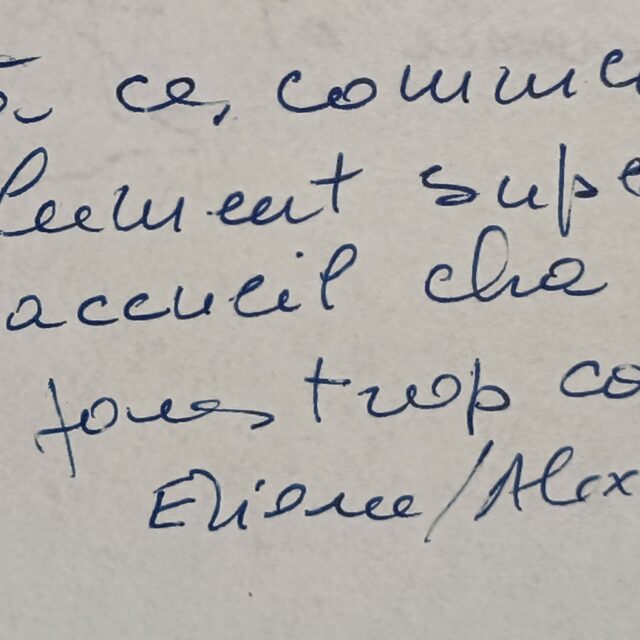 ce, comme
lument supe
accueil cha
jours trop co
Eliane/Alex